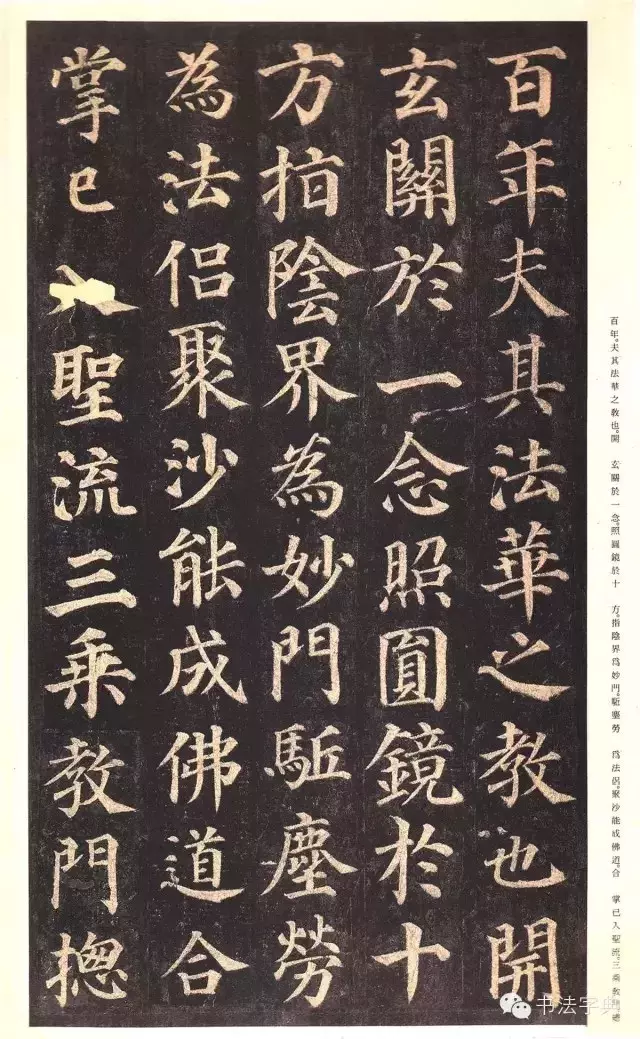 百年夫其法華之教也開
玄關於一念照圓鏡於十
方指陰界為妙門駈塵勞
為法侣聚沙能成佛道合
掌已入聖流三乗教門揔
百年。夫其法華之教也。開 玄關於一念。照圓鏡於十 方。指陰界爲妙門。駈塵勞 爲法侶。聚沙能成佛道。合 掌已入聖流。三乘教門。總
书法字典